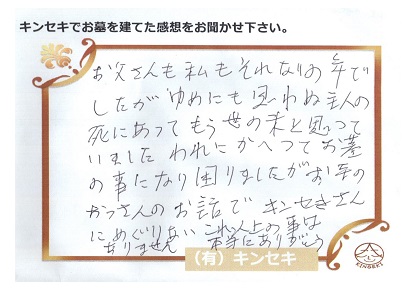 キンセキでお墓を建てた感想をお聞かせ下さい。
お父さんも私もそれなりの年で
したがゆめにも思わぬ主人の
死にあってもう世の末と思って
いましたわれにかへってお墓
の事になり困りましたがお寺の
かっさんのお話でキンセキさん
にめぐりあいこれ以上の事は
ありません 本当にありがとう
(有)キンセキ
KINSEKI